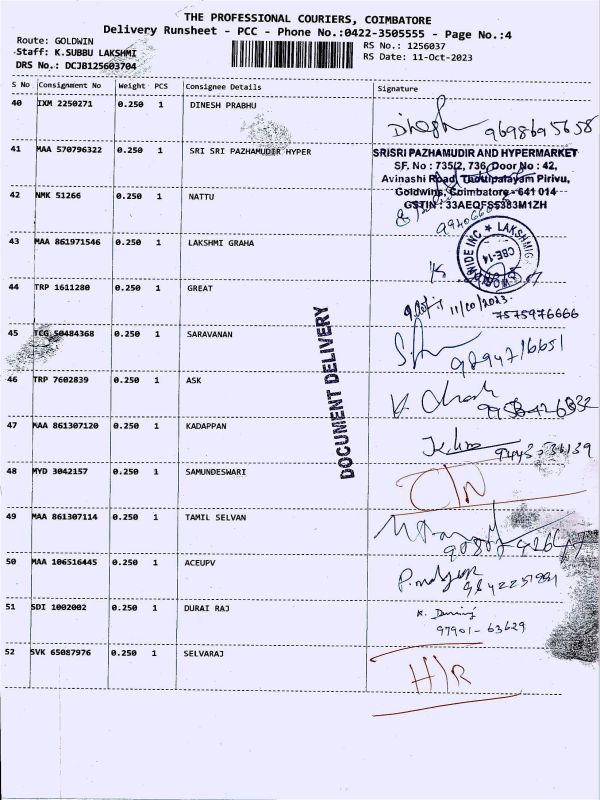 THE PROFESSIONAL COURIERS, COIMBATORE
Delivery Runsheet - PCC - Phone No.:0422-3505555 - Page No.:4
Route: GOLDWIN
Staff: K.SUBBU LAKSHMI
DRS No.: DCJB125603704
RS No.: 1256037
RS Date: 11-Oct-2023
S No Consignment No Weight PCS Consignee Details Signature
40 IXM 2250271 0.250 1 DINESH PRABHU
Dinesh 9698695658
41 MAA 570796322 0.250 1 SRI SRI PAZHAMUDIR HYPER
SRISRI PAZHAMUDIR AND HYPERMARKET
SF. No : 735/2, 736, Door No : 42,
Avinashi Road, Thottipalayam Pirivu,
Goldwins, Coimbatore - 641 014
GSTIN : 33AEQFS5383M1ZH
42 NMK 51266 0.250 1 NATTU
43 MAA 861971546 0.250 1 LAKSHMI GRAHA
CBE-14
44 TRP 1611280 0.250 1 GREAT
11/10/2023
7575976666
45 TCG 50484368 0.250 1 SARAVANAN
9894716651
46 TRP 7602839 0.250 1 ASK
47 MAA 861307120 0.250 1 KADAPPAN
48 MYD 3042157 0.250 1 SAMUNDESWARI
49 MAA 861307114 0.250 1 TAMIL SELVAN
50 MAA 106516445 0.250 1 ACEUPV
51 SDI 1002002 0.250 1 DURAI RAJ
97901-63629
52 SVK 65087976 0.250 1 SELVARAJ
H/R
DOCUMENT DELIVERY